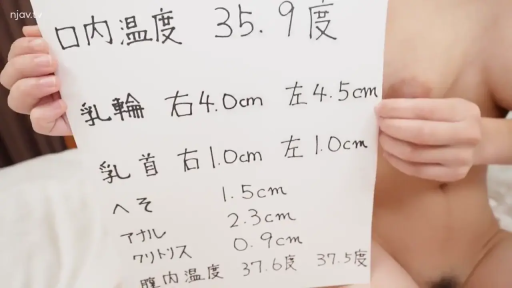 njav.tv
口内温度 35.9度
乳輪 右4.0cm 左4.5cm
乳首 右1.0cm 左1.0cm
へそ 1.5cm
アナル 2.3cm
クリトリス 0.9cm
膣内温度 37.6度 37.5度